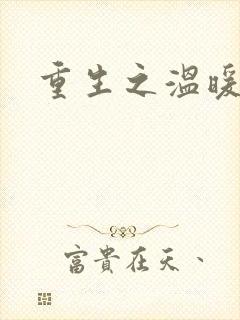 重生之溫暖
富貴在天、